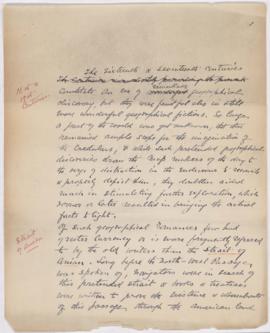 The Sixteenth & Seventeenth Centuries
constitute an era of remarkable geographical
discovery but they were fruitful also in still
more wonderful geographical fictions. So large
a part of the world was yet unknown, that there
remained ample scope for the imagination of
the credulous, & while such pretended geographical
discoveries drove the map makers of the day to
the verge of distraction in the endeavour to reconcile
& properly depict them, they doubtless aided
much in stimulating further exploration, which
sooner or later resulted in bringing the actual
facts to light.
Of such geographical Romances few had
greater currency or is more frequently referred
to by the old writers than the Strait of
Anian. Long before the North-West Passage
was spoken of, navigators were in search of
this pretended strait & books & treatises
were written to prove the existence &
of this passage through the American
Strait
of Anian